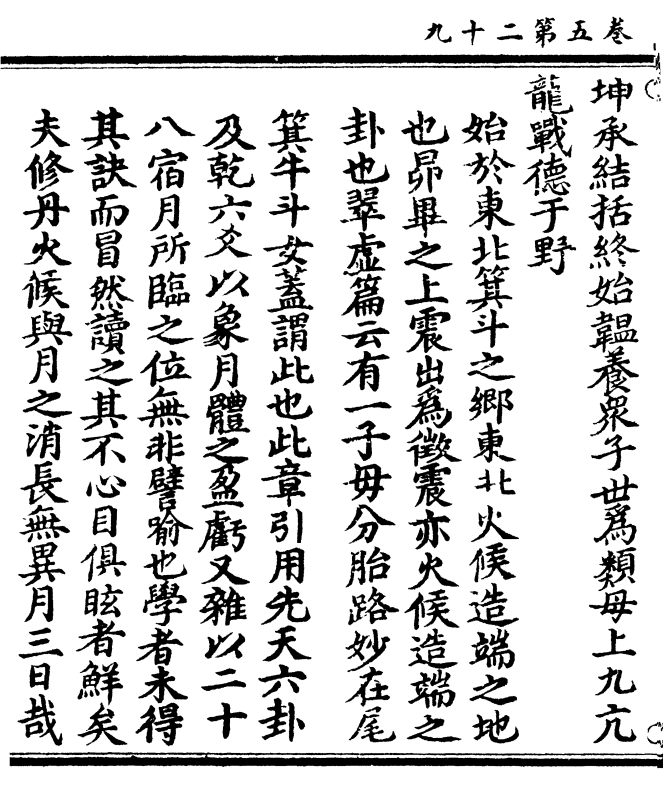 卷五第二十九
坤承結括終始韞養衆子世爲類母上九亢
龍戰德于野
始於東北箕斗之鄉東北火候造端之地
也昴畢之上震出爲徵震亦火候造端之
卦也翠虛篇云有一子母分胎路妙在尾
箕牛斗女蓋謂此也此章引用先天六卦
及乾六爻以象月體之盈虧又雜以二十
八宿月所臨之位無非譬喻也學者未得
其訣而冒然讀之其不心目俱眩者鮮矣
夫修丹火候與月之消長無異月三日哉